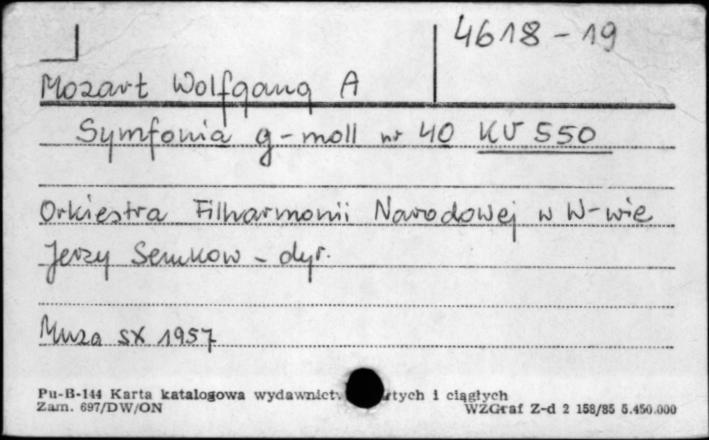 4618-19
Mozart Wolfgang A
Symfonia g-moll nr 40 KV 550
Orkiestra Filharmonii Narodowej w W-wie
Jerzy Semkow - dyr.
Muza SX 1957
Pu-B-144 Karta katalogowa wydawnictw i ciągłych
Zam. 697/DW/ON WZGraf Z-d 2 158/85 5.450.000